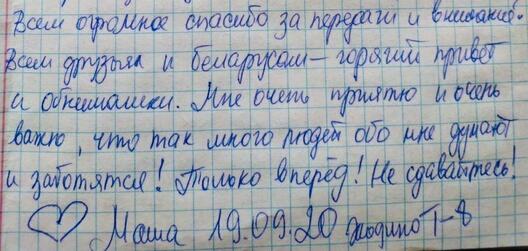 Всем огромное спасибо за передачи и внимание.
Всем друзьям и беларусам – горячий привет
и обнимашки. Мне очень приятно и очень
важно, что так много людей обо мне думают
и заботятся! Только вперёд! Не сдавайтесь!
Маша 19.09.20 Жодино Т-8